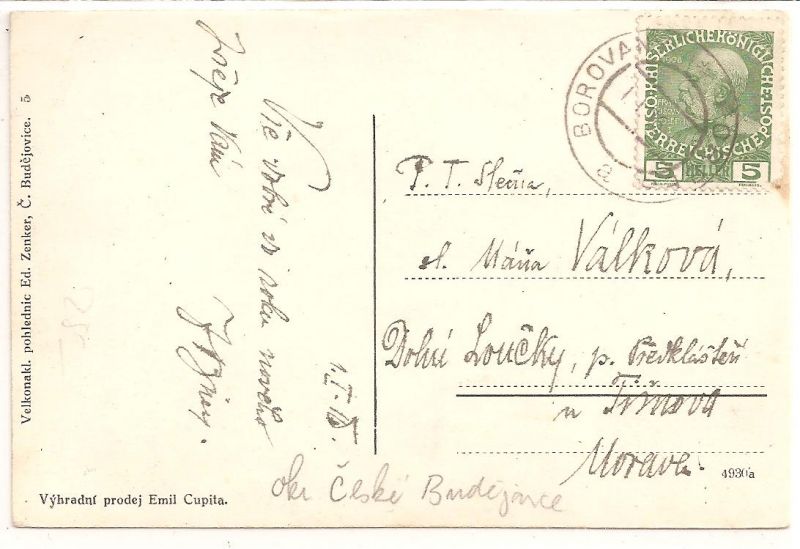 Velkonakl. pohlednic Ed. Zenker, Č. Budějovice. 5
Vše dobré do roku nového
přeje Vám
1. I. 15
Výhradní prodej Emil Cupita.
BOROVAN
a
KAISERLICHE KÖNIGLICHE
ÖSTERREICHISCHE POST
1908
5 HELLER 5
P. T. Slečna,
sl. Máňa Válková,
Dolní Loučky, p. Předklášteří
u Tišnova
Morava.
4930a
okr České Budějovice